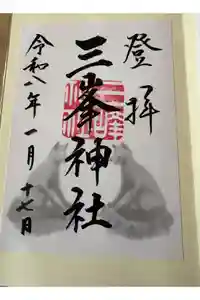 登拝
三峯神社
令和八年一月十七日